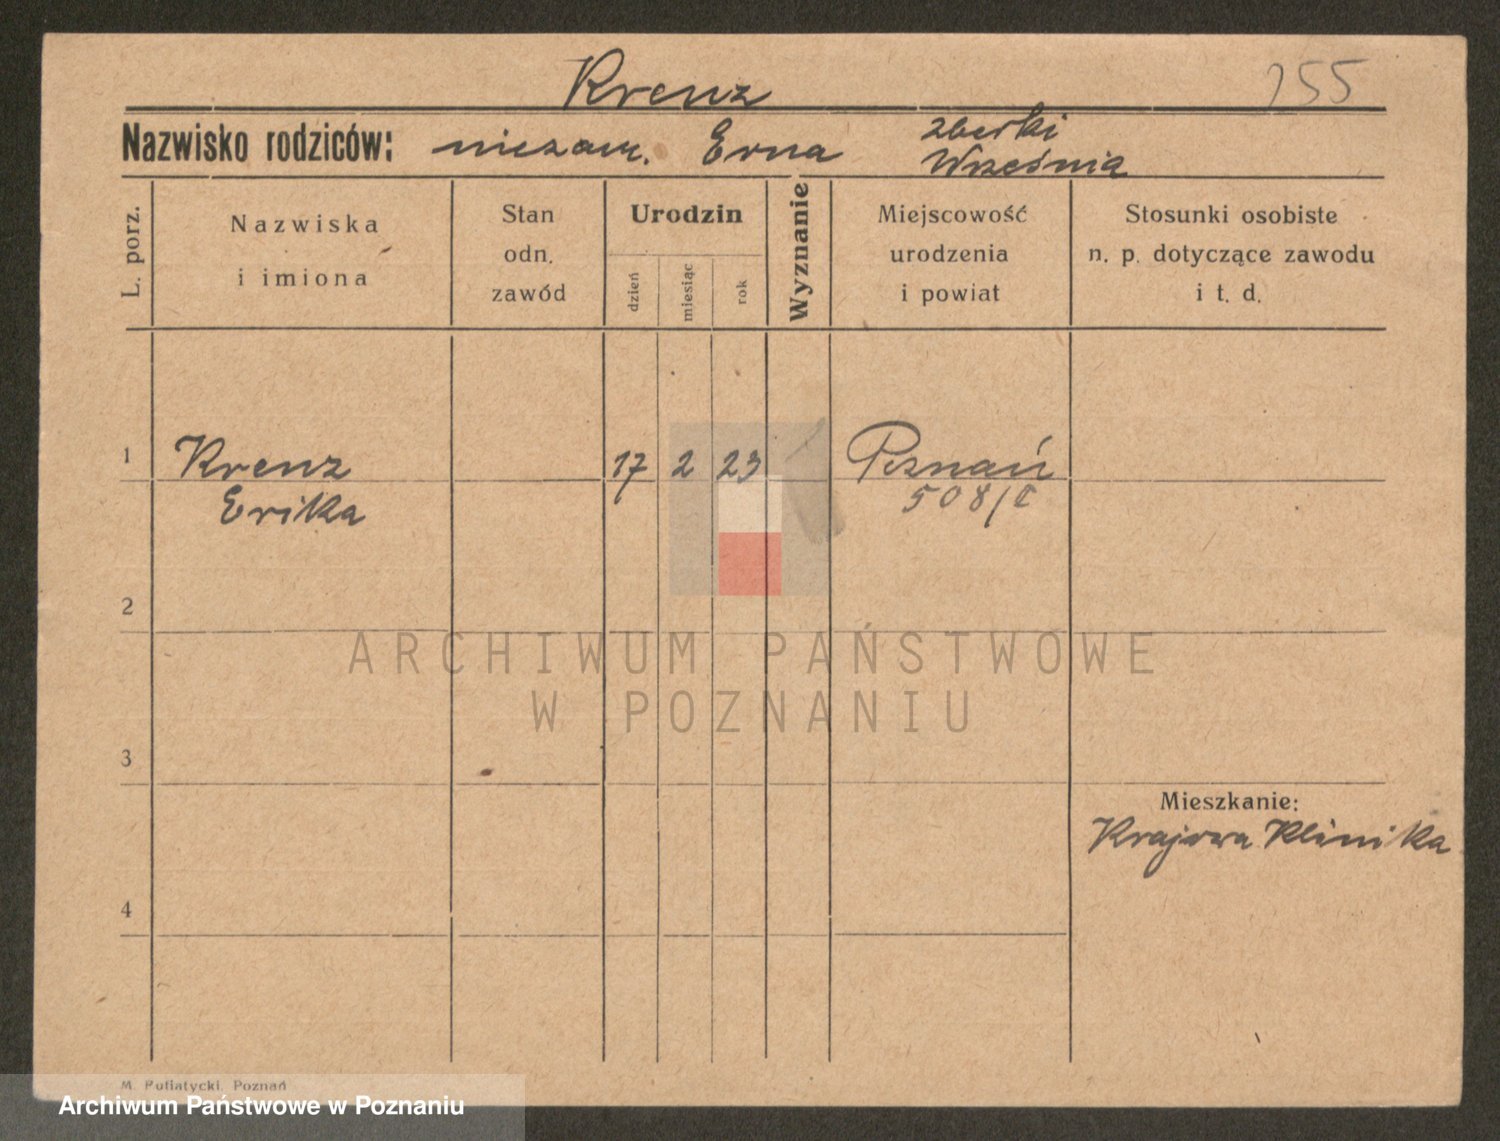 Krenz
155
Nazwisko rodziców: niezam. Erna Zberki
Września
L. porz.
Nazwiska
i imiona
Stan
odn.
zawód
Urodzin
dzień
miesiąc
rok
Wyznanie
Miejscowość
urodzenia
i powiat
Stosunki osobiste
n. p. dotyczące zawodu
i t. d.
1 Krenz 17 2 23 Poznań
Erika 508/I
2
ARCHIWUM PAŃSTWOWE
W POZNANIU
3
Mieszkanie:
Krajowa Klinika
4
M. Putiatycki, Poznań
Archiwum Państwowe w Poznaniu